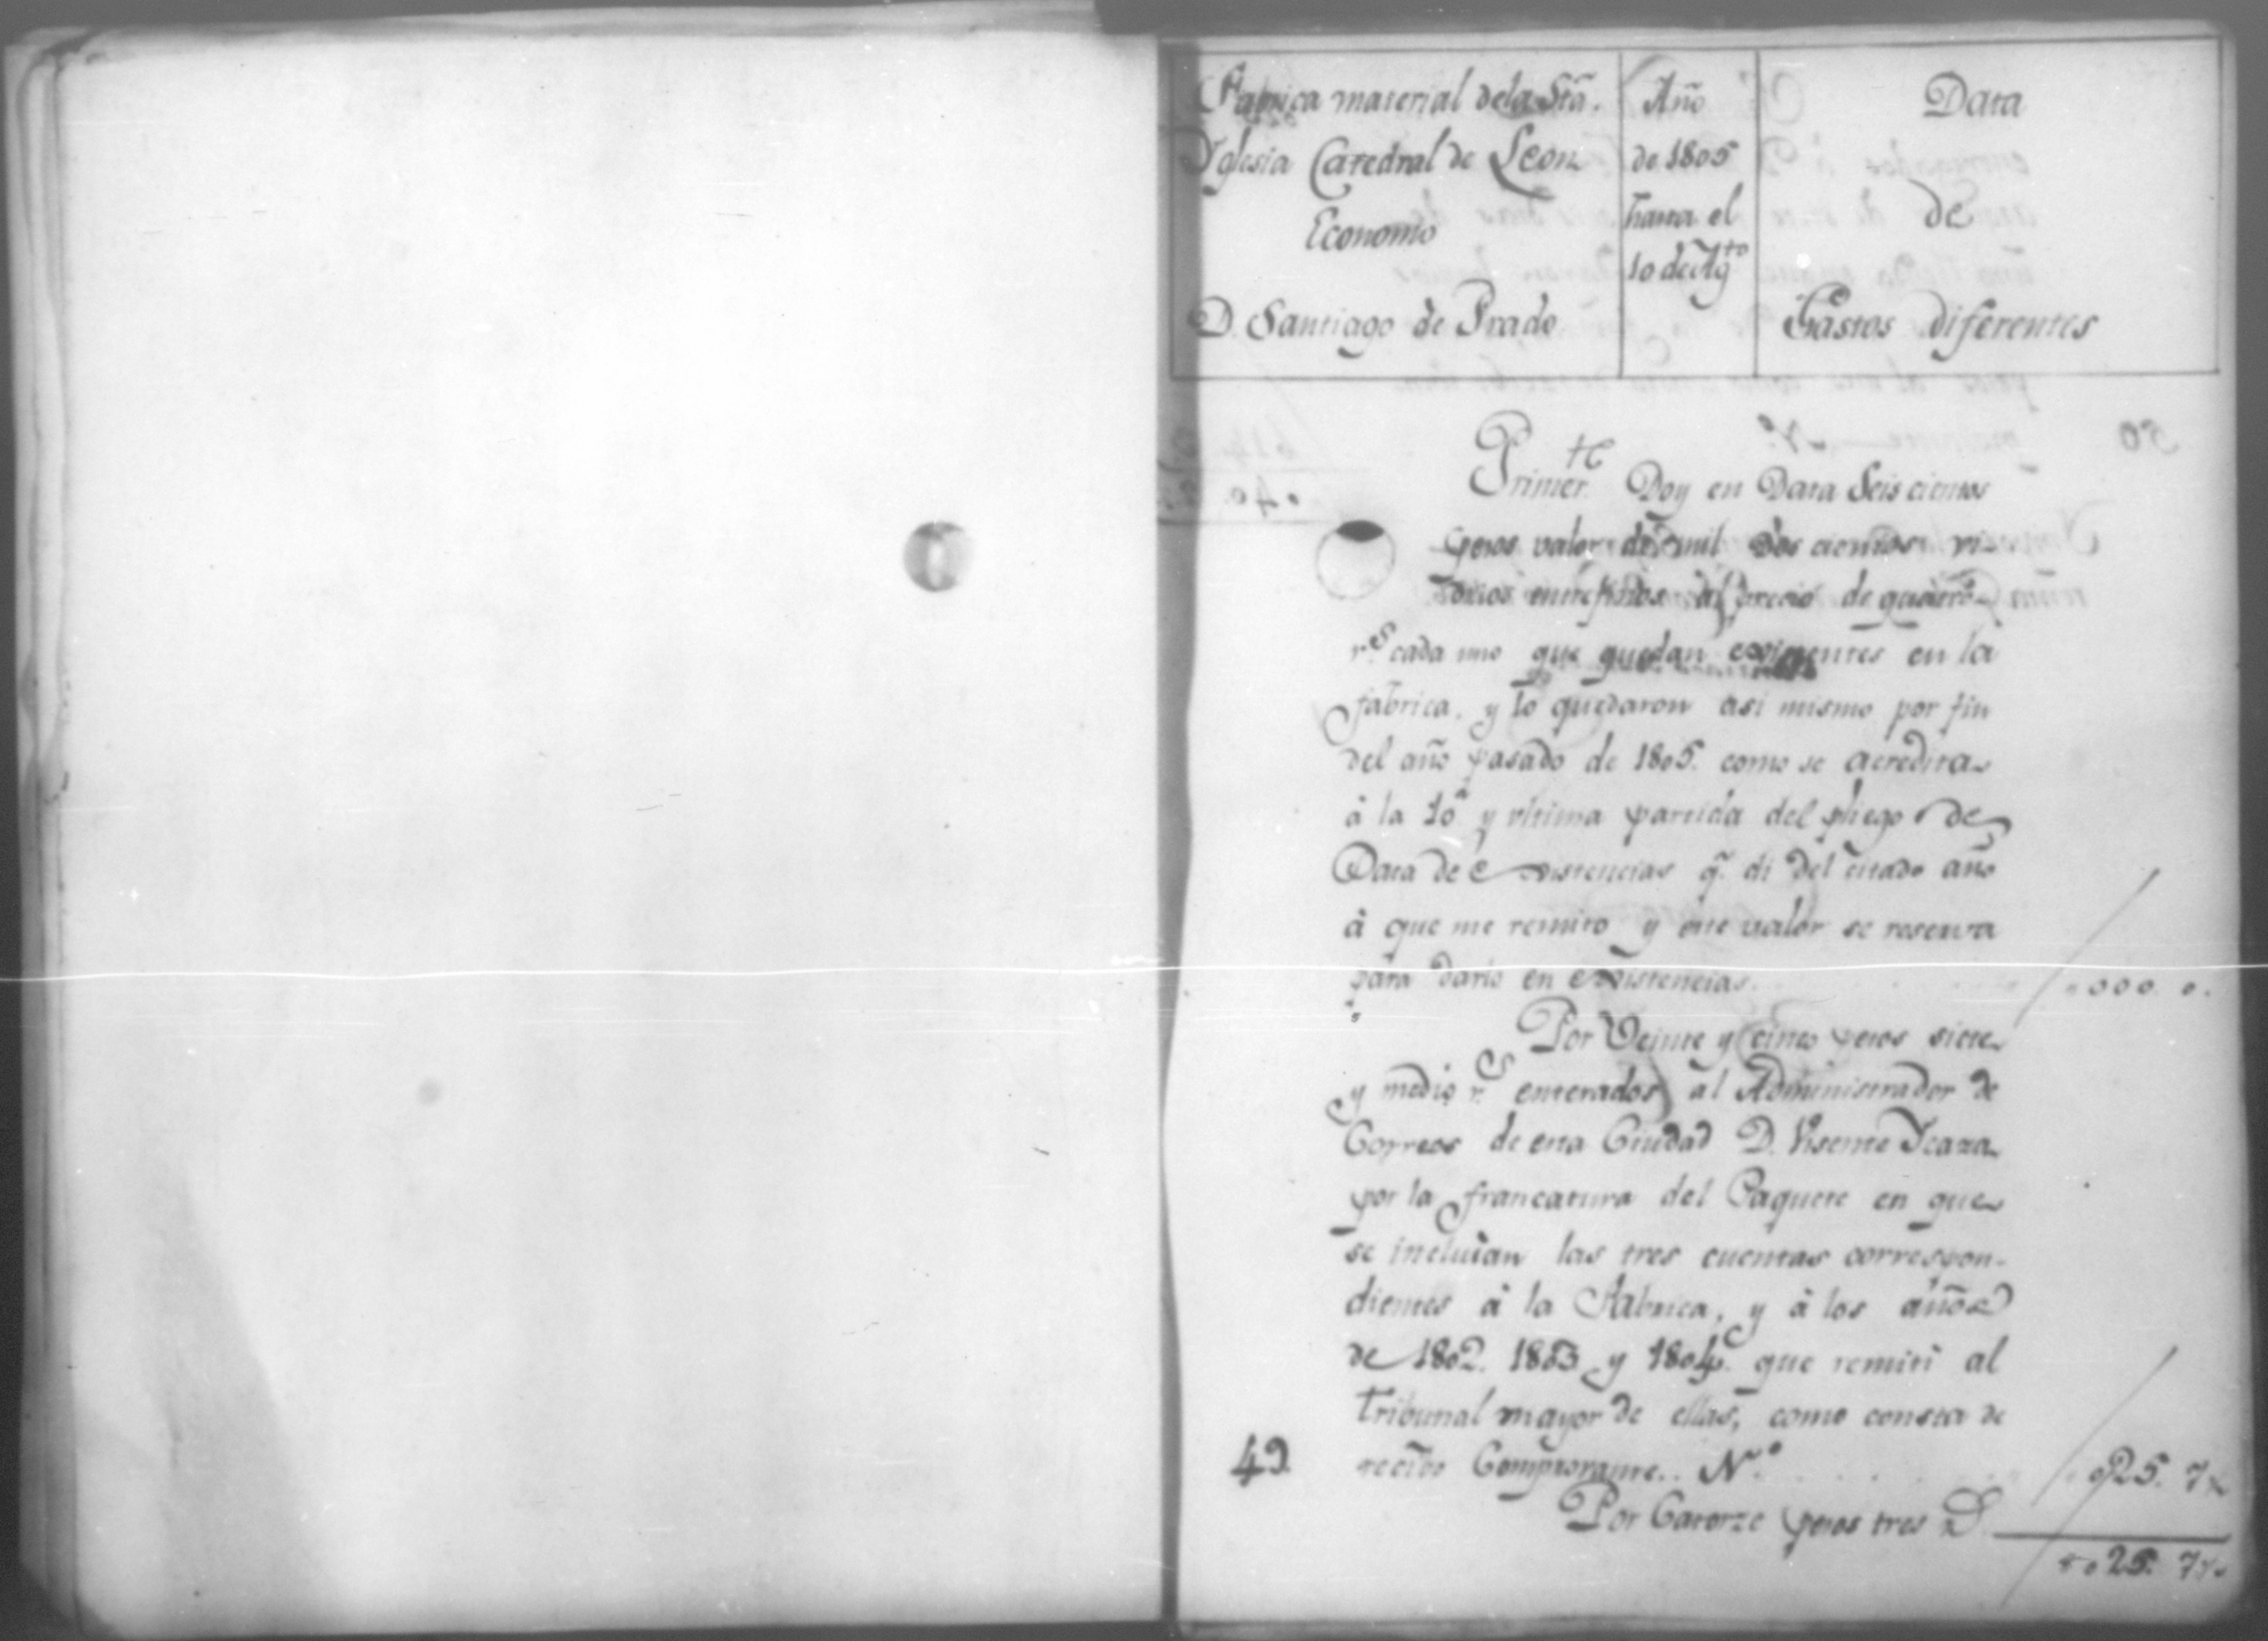 Fabrica material de la Sta.
Yglesia Catedral de Leon
Economo
D. Santiago de Prado
Año
de 1805
hasta el
10 de Agto
Data
de
Gastos diferentes
Primerte Doy en Data Seiscientos
pesos valor de mil dos cientos vi-
drios entrefinos al precio de quatro
rs cada uno que quedan existentes en la
fabrica, y lo quedaron asi mismo por fin
del año pasado de 1805. como se acredita
à la 10a y ultima partida del pliego de
Data de existencias q. di del citado año
à que me remito y este valor se reserva
para darlo en existencias. 000 0.
Por Veinte y cinco pesos siete
y medio rs enterados al Administrador de
Correos de esta Ciudad D. Visente Ycaza
por la francatura del Paquete en que
se incluian las tres cuentas correspon-
dientes à la Fabrica, y à los años
de 1802. 1803 y 1804. que remiti al
Tribunal mayor de ellas, como consta de
49 recivo Comprovante.. No. 025. 7
Por Catorze pesos tres
025. 7